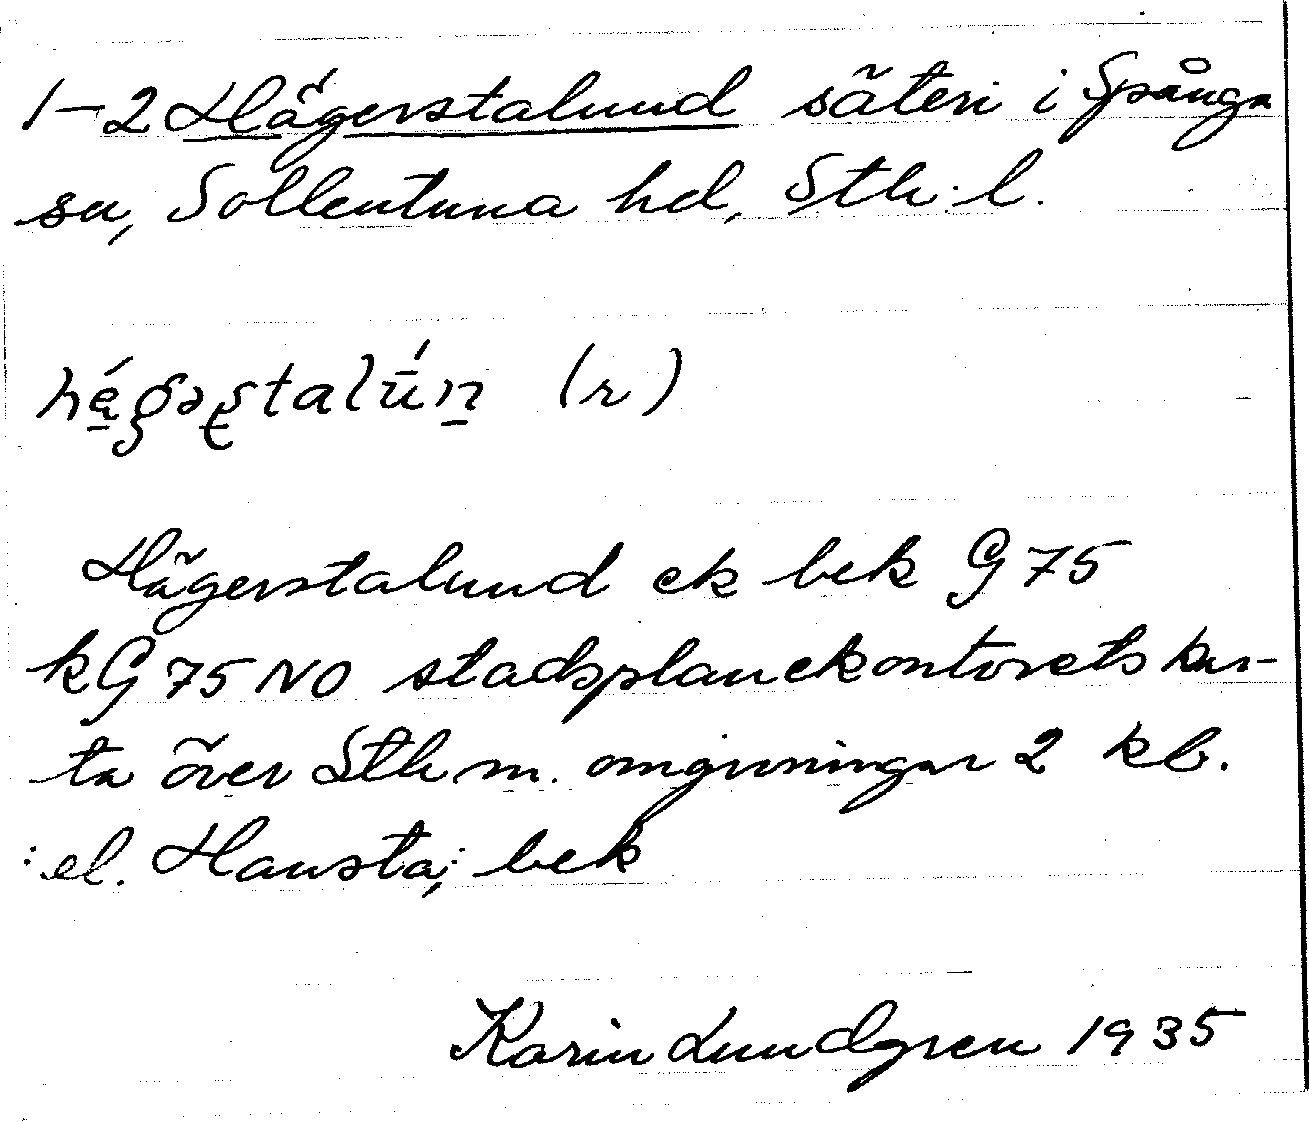 1-2 Hägerstalund säteri i Spånga
sn, Sollentuna hd, Sth. l.
(r)
Hägerstalund ek bek G 75
kG 75 NO stadsplanekontorets kar-
ta över Sthm. omgivningar 2 kb.
: el. Hansta; bek
Karin Lundgren 1935